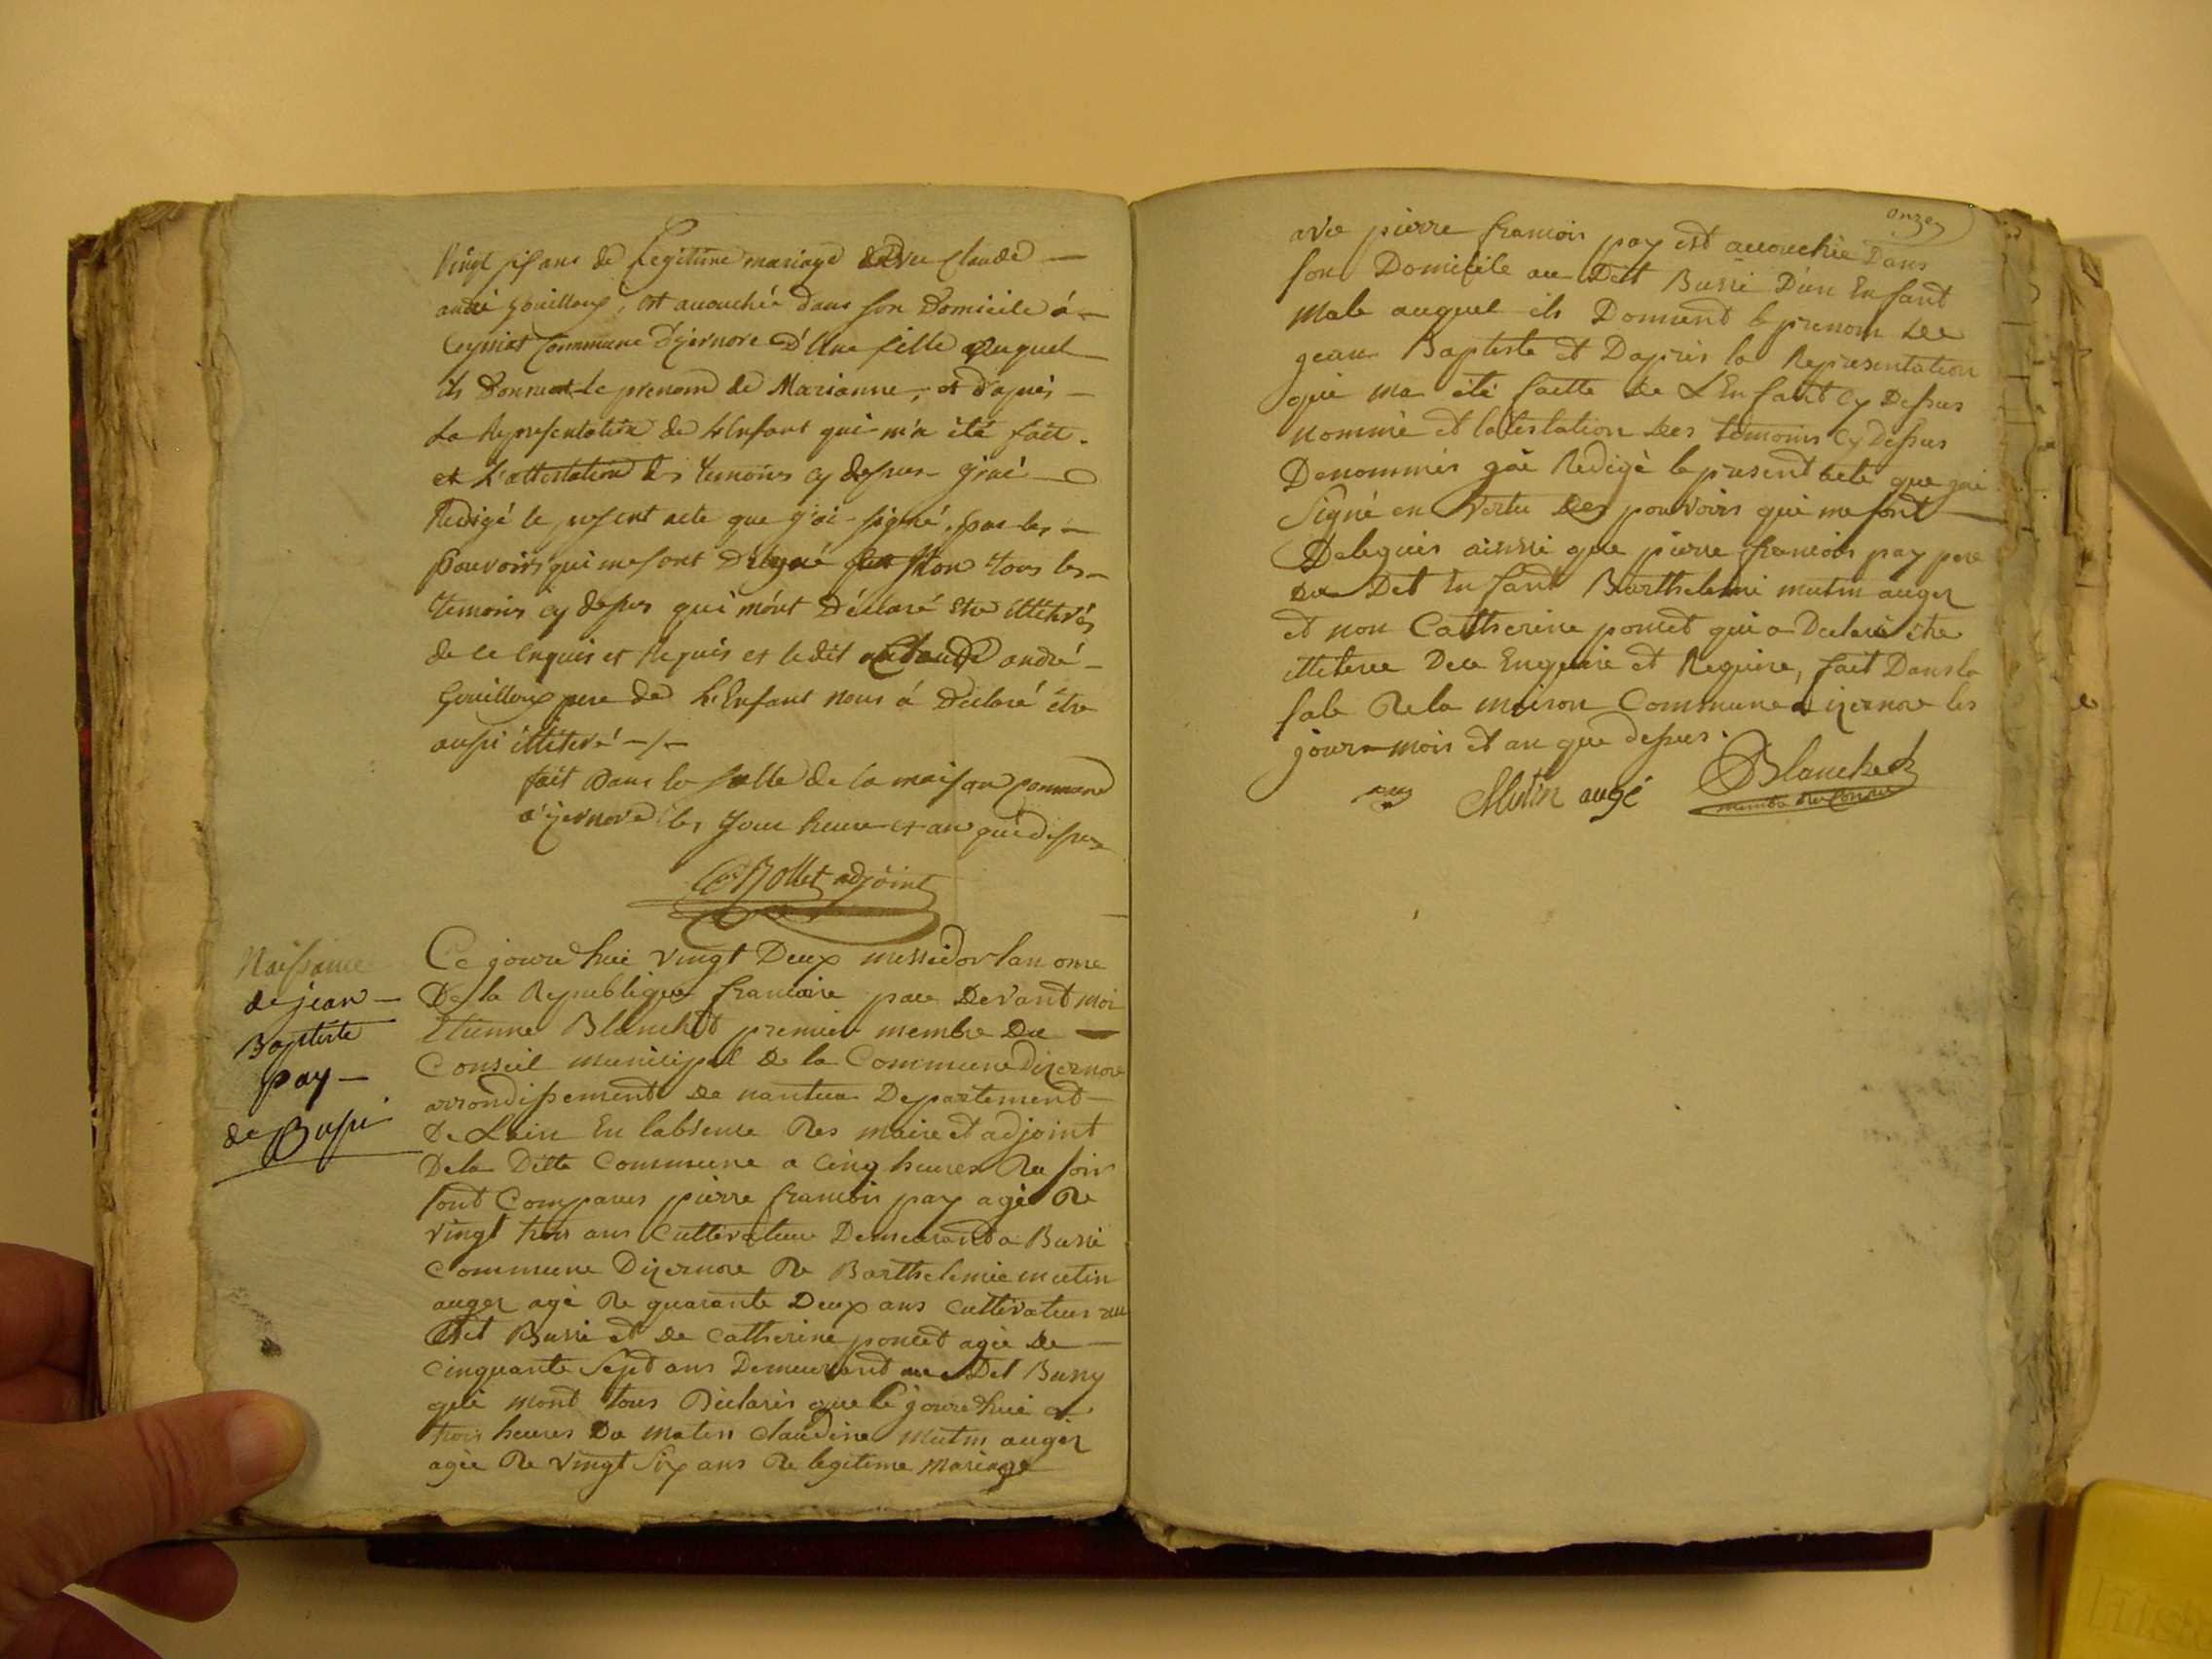 Vingt six ans de Legitime mariage avec Claude —
andré Gouilloux, est acouchée dans son Domicile á —
Ceyssiat Commune D'yzernore D'Une fille auquel —
ils donnent le prenom de Marianne, et d'après —
La Representation de L'Enfant qui m'a été fait.
et L'attestation des temoins cy dessus g'iaé —
Redigé le present acte que g'ai signé, par les —
pouvoirs qui me sont Délégué et non tous les —
temoins cy dessus qui m'ont Déclaré Etre illitérés
de ce enquis et Requis et le dit Claude andré —
Gouilloux pere de L'Enfant nous á Déclaré étre
aussi illitéré —/—
fait Dans la salle de la maison Commune
d'yzernore les Jour heure et an que dessus
Rollet adjoint
Naissance
de jean —
Baptiste
pay —
de Bussi
Ce jourd hui vingt Deux messidor lan onze
De la Republique francaise par Devant moi
Etienne Blanchet premier membre Du —
Conseil municipal De la Commune Dizernore
arrondissement de nantua Departement —
De Lain En labsence Des maire et adjoint
De la Ditte Commune a Cinq heures Du soir
sont Comparus pierre francois pay agé De
vingt trois ans Cultivateur Demeurant a Bussi
Commune Dizernore De Barthelemie mutin
auger agé De quarante Deux ans Cultivateur au
Dit Bussi et de Catherine poncet agée de —
Cinquante Sept ans Demeurant au Det Bussy
qui mont tous Déclarés que Ce jourd hui a
trois heures Du Matin Claudine Mutin auger
agée De vingt Six ans De legitime Mariage
onze
avec pierre francois pay est acouchée Dans
son Domicile au Dit Bussi D'un Enfant
Male auquel ils Donnent le prenom de
gean Baptiste et Daprès la Representation
qui ma été faitte de L'Enfant Cy Dessus
nommé et latestation des temoins Cy Dessus
Denommés gai Redigé le present acte que jai
Signé en vertu des pouvoirs qui me sont —
Delegués ainssi que pierre francois pay pere
du Det Enfant Barthelemi mutin auger
et non Catherine poncet qui a Declaré étre
illiteree De ce Enquise et Requise, fait Dans la
sale De la maison Commune dizernore les
jour mois et an que dessus.
pay Mutin augé Blanchet
membre du Conseil